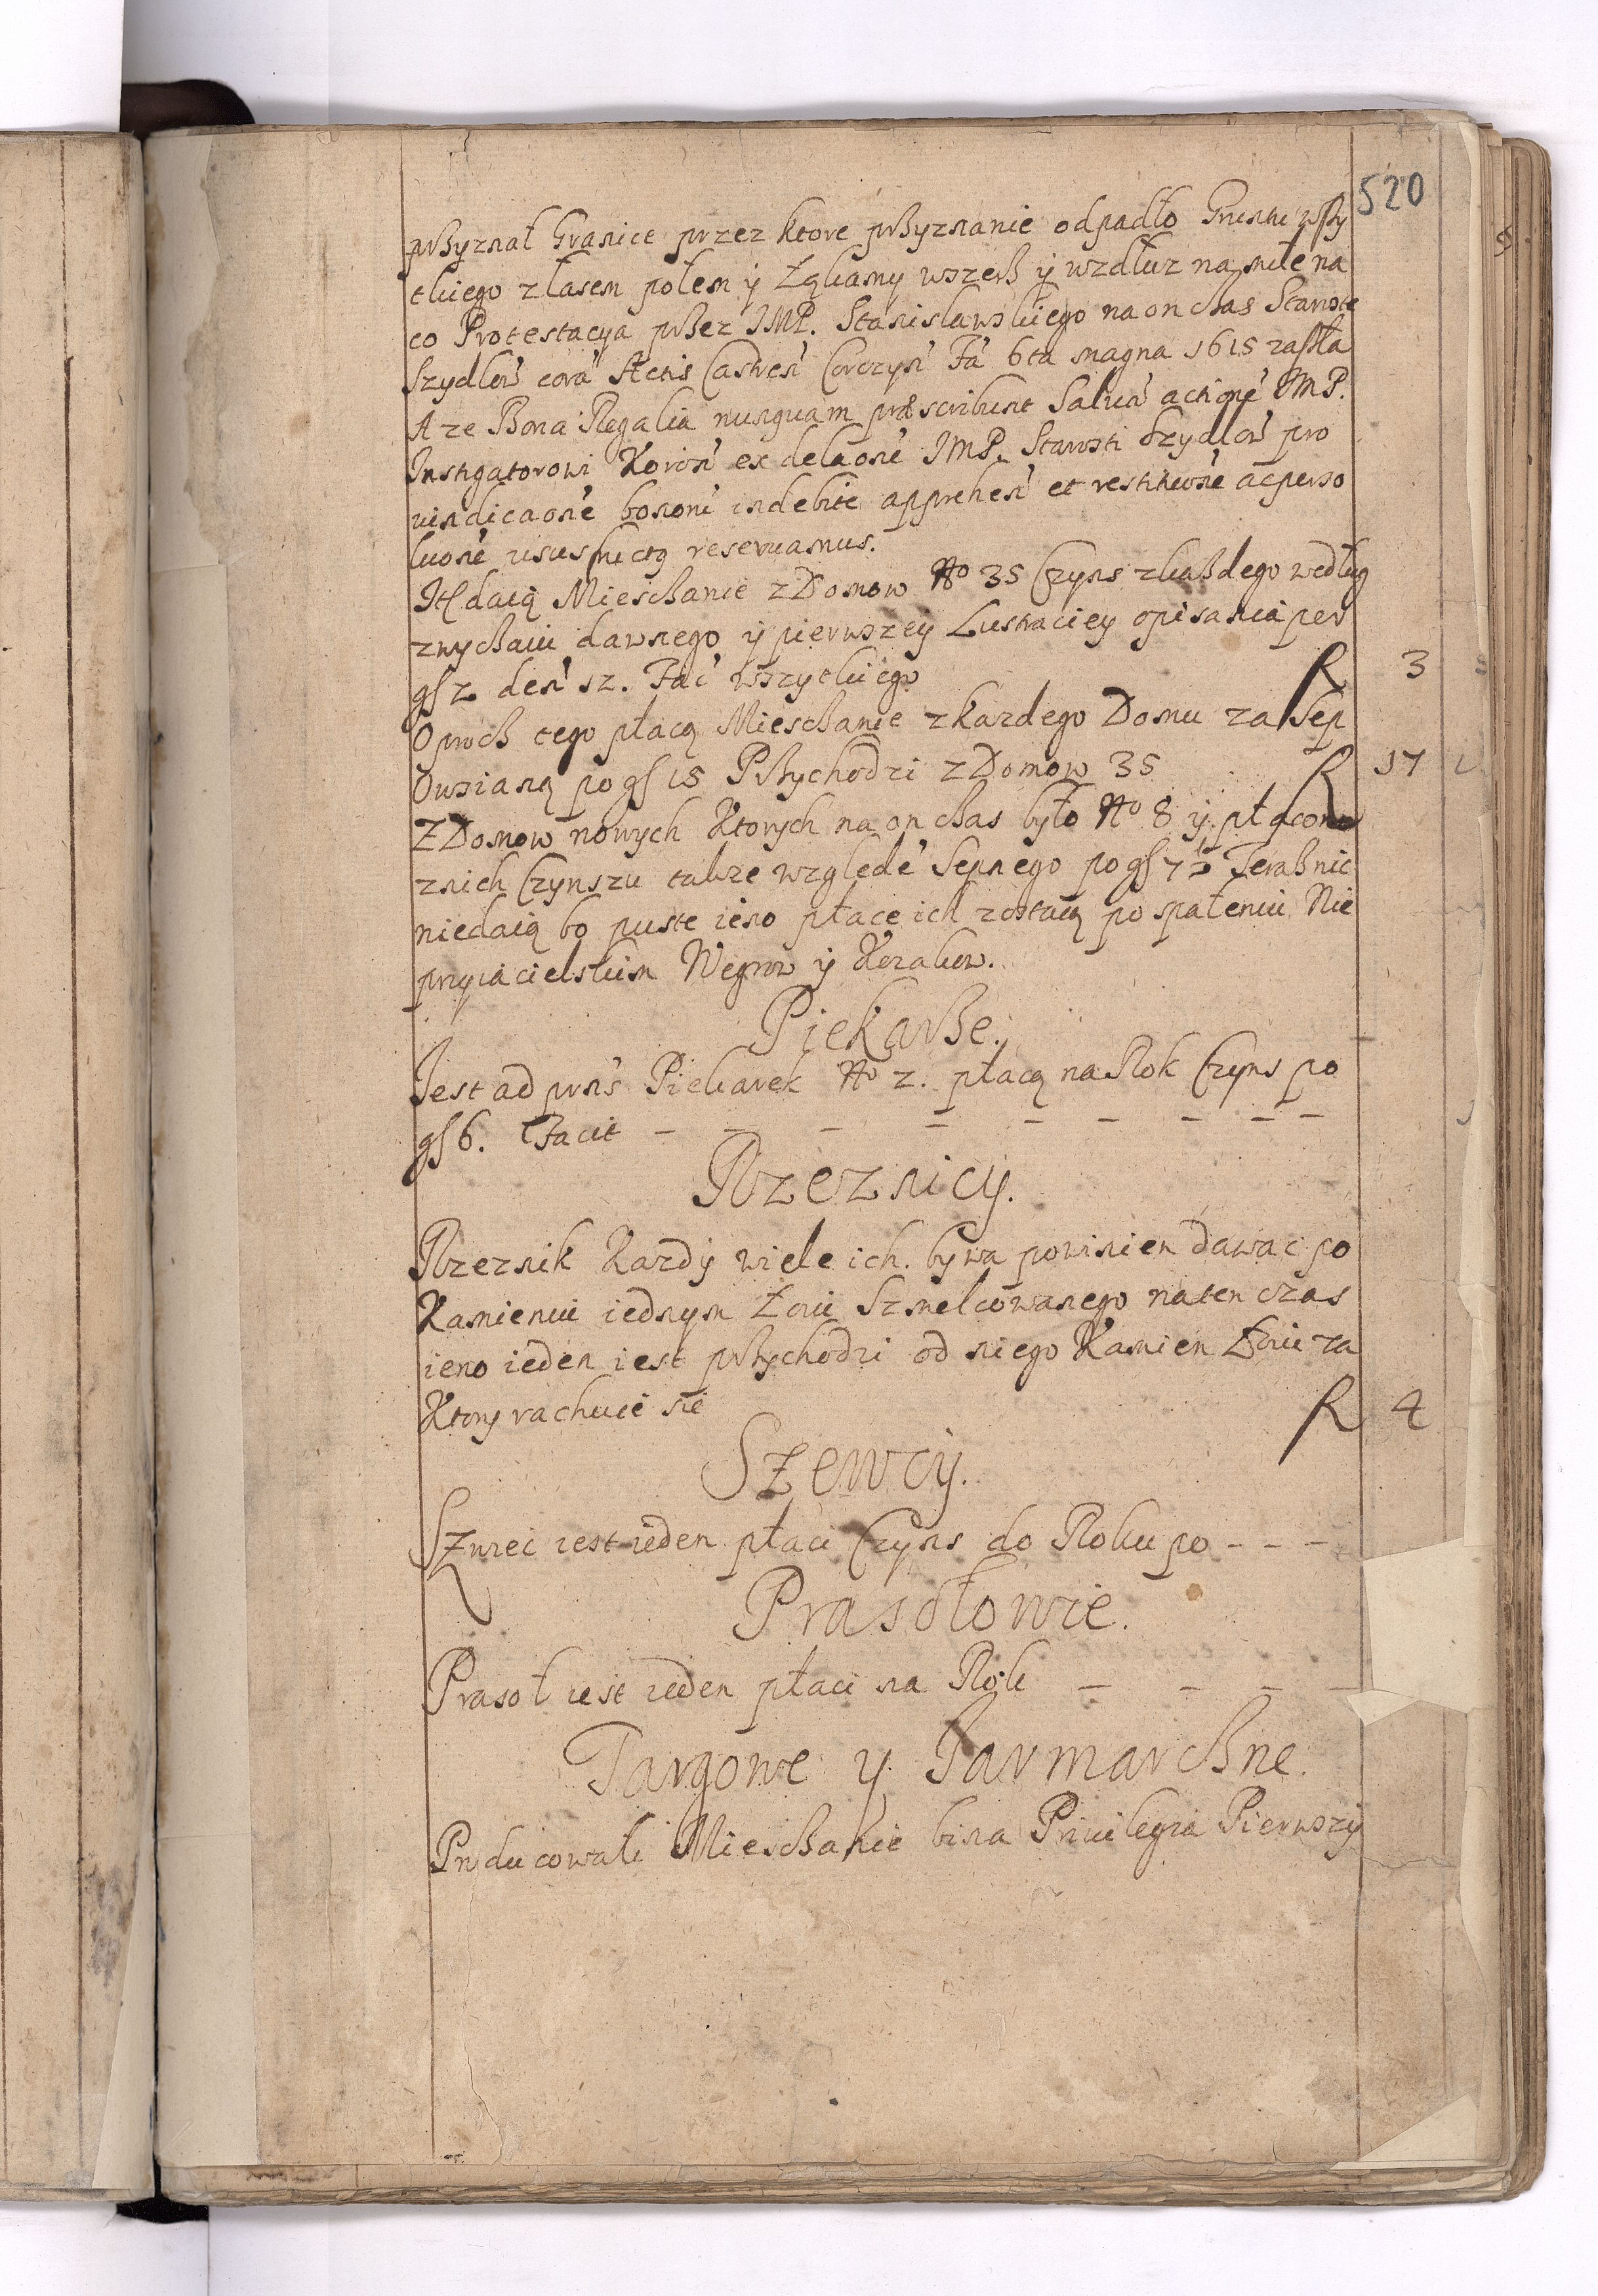 520
przyznał Granice przez ktore przyznanie odpadło Gruntu wszy
tkiego z lasem polem y Łąkamy wszerz ÿ wzdłuz na mile na
co Protestacya przez JMP. Stanisławskiego na on czas Staroste
Szydłow corā Actis Castren Corczyn Fā 6ta magna 1615 zaszła
A ze Bona Regalia nusquam præscribunt Saluā actione JMP.
Instigatorowi Koron ex delaone JMP. Starosti Szydlow pro
uindicaone bonorū indebite apprehen et restituone ac perso
luone ususfructq reseruamus.
Itē daią Miesczanie z Domow No 35 Czyns z każdego według
zwyczaiu dawnego ÿ pierwszeÿ Lustraciey opisania per
gſ 2 den sz. Fac wszytkiego R 3
Oprocz tego płacą Miesczanie z kazdego Domu za Sep
Owsianą po gſ 15 Przychodzi z Domow 35 R 17
Z Domow nowych Ktorych na on czas było No 8 ÿ płacono
z nich Czynszu takze względē Sepnego po gſ 7½ Teraz nic
niedaią bo puste ieno place ich zostaią po spaleniu Nie
przyiacielskim Węgrow ÿ Kozakow.
Piekarze.
Jest ad prns Piekarek No 2. płacą na Rok Czyns po
gſ 6. Facit — — — — — — — — —
Rzeznicy.
Rzeznik Kazdÿ wiele ich bywa powinien dawac po
Kamieniu iednym Łoiu Szmelcowanego na ten czas
ieno ieden iest przychodzi od niego Kamien Łoiu za
Ktory rachuie sie R 4
Szewcÿ.
Szwiec iest ieden płaci Czyns do Roku po - - -
Prasołowie.
Prasoł iest ieden płaci na Rok — — — —
Targowe y Jarmarczne.
Producowali Miesczanie bina Priuilegia Pierwszÿ